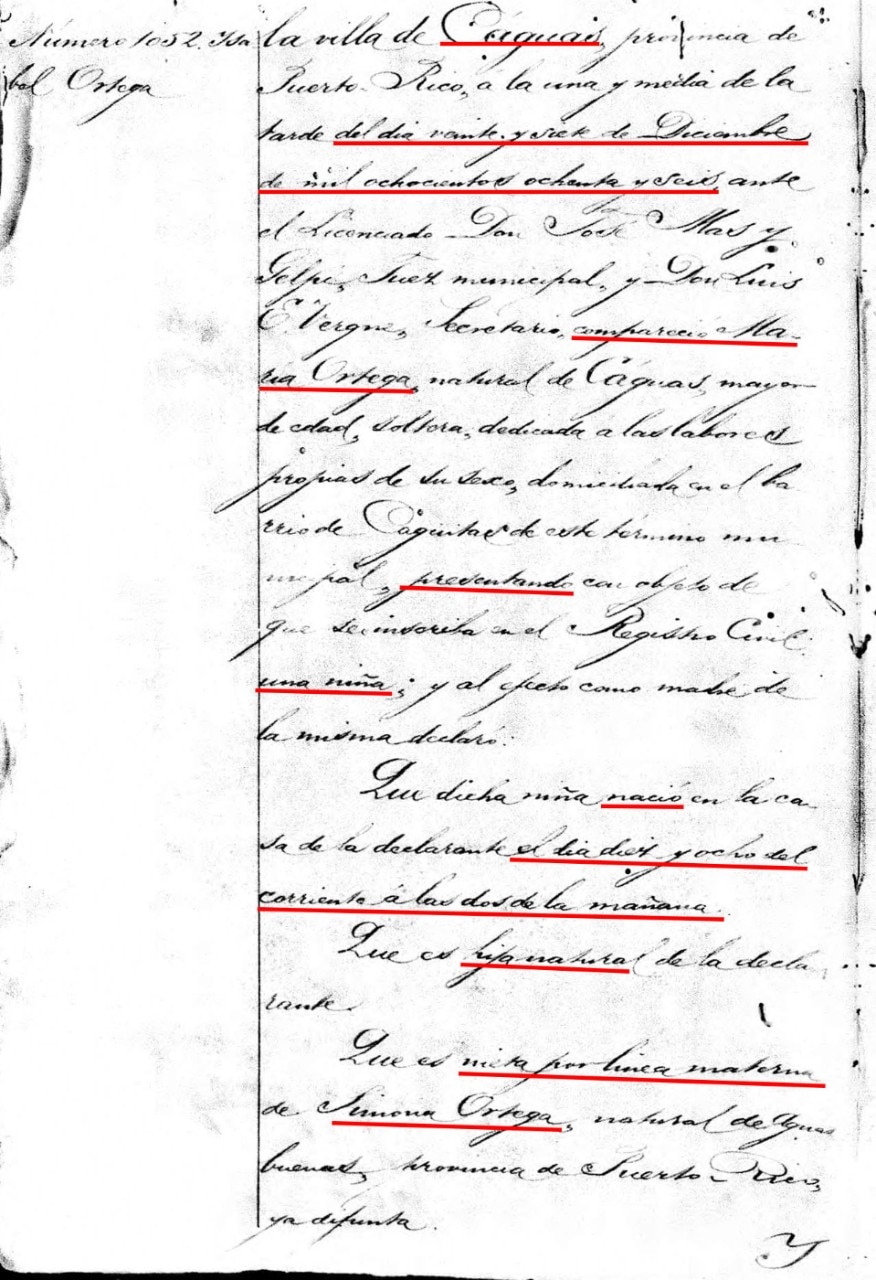 Número 1052. Isa
bel Ortega
la villa de Cáguas, provincia de
Puerto-Rico, á la una y media de la
tarde del dia veinte y siete de Diciembre
de mil ochocientos ochenta y seis, ante
el Licenciado Don José Mas y
Gelpi, Juez municipal, y Don Luis
E. Vergne, Secretario, compareció Ma-
ria Ortega, natural de Cáguas, mayor
de edad, soltera, dedicada á las labores
propias de su sexo, domiciliada en el ba
rrio de Cagüitas de este término mu
nicipal, presentando con objeto de
que se inscriba en el Registro Civil
una niña; y al efecto como madre de
la misma declaró:
Que dicha niña nació en la ca-
sa de la declarante el dia diez y ocho del
corriente á las dos de la mañana.
Que es hija natural de la decla
rante
Que es nieta por linea materna
de Simona Ortega, natural de Aguas
buenas, provincia de Puerto-Rico,
ya difunta.
Y